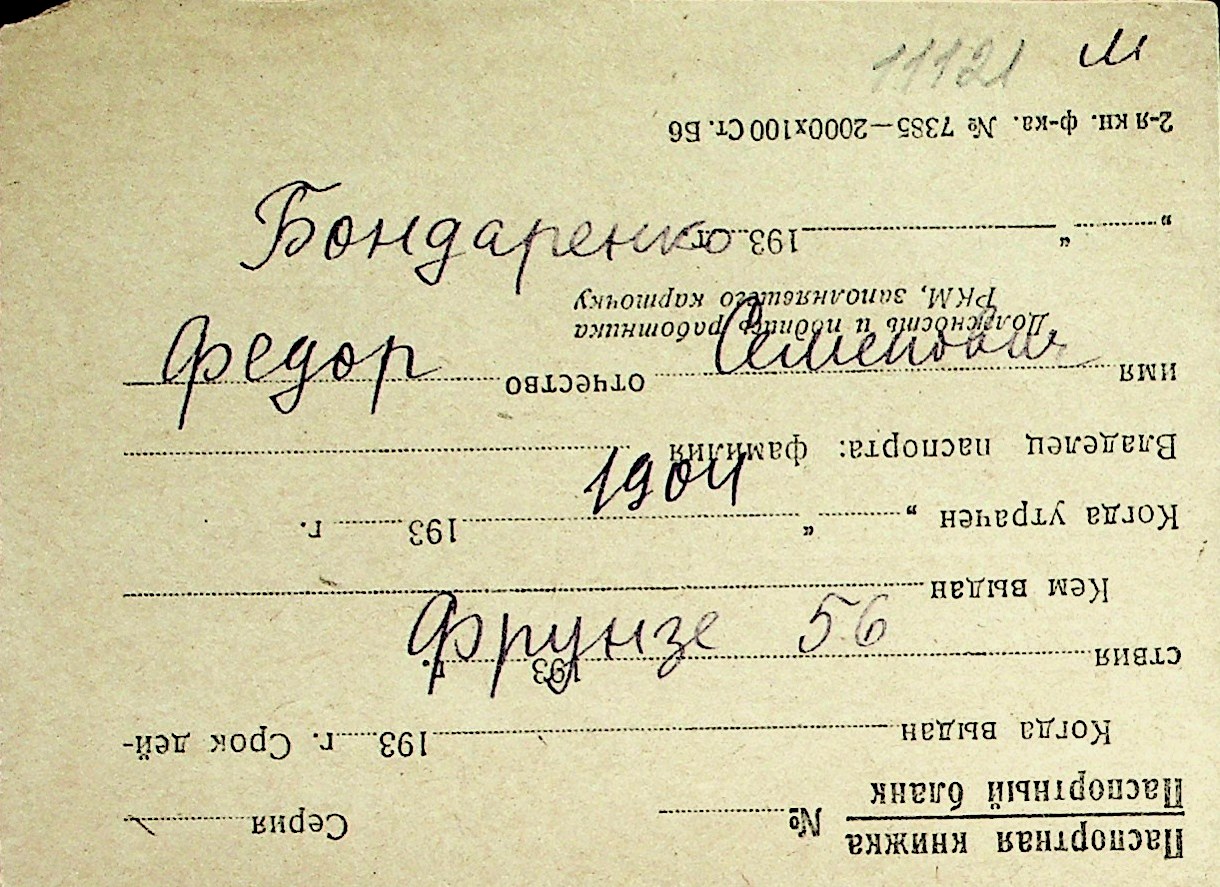 11121 М
Бондаренко
Федор Семенович
1904
Фрунзе 56
Паспортная книжка
Паспортный бланк
№ Серия
Когда выдан 193 г. Срок дей-
ствия 193 г.
Кем выдан
Когда утрачен „ “ 193 г.
Владелец паспорта: фамилия
имя отчество
Должность и подпись работника
РКМ, заполнявшего карточку
„ “ 193 г.
2-я кн. ф-ка. № 7385—2000х100 Ст. Б6